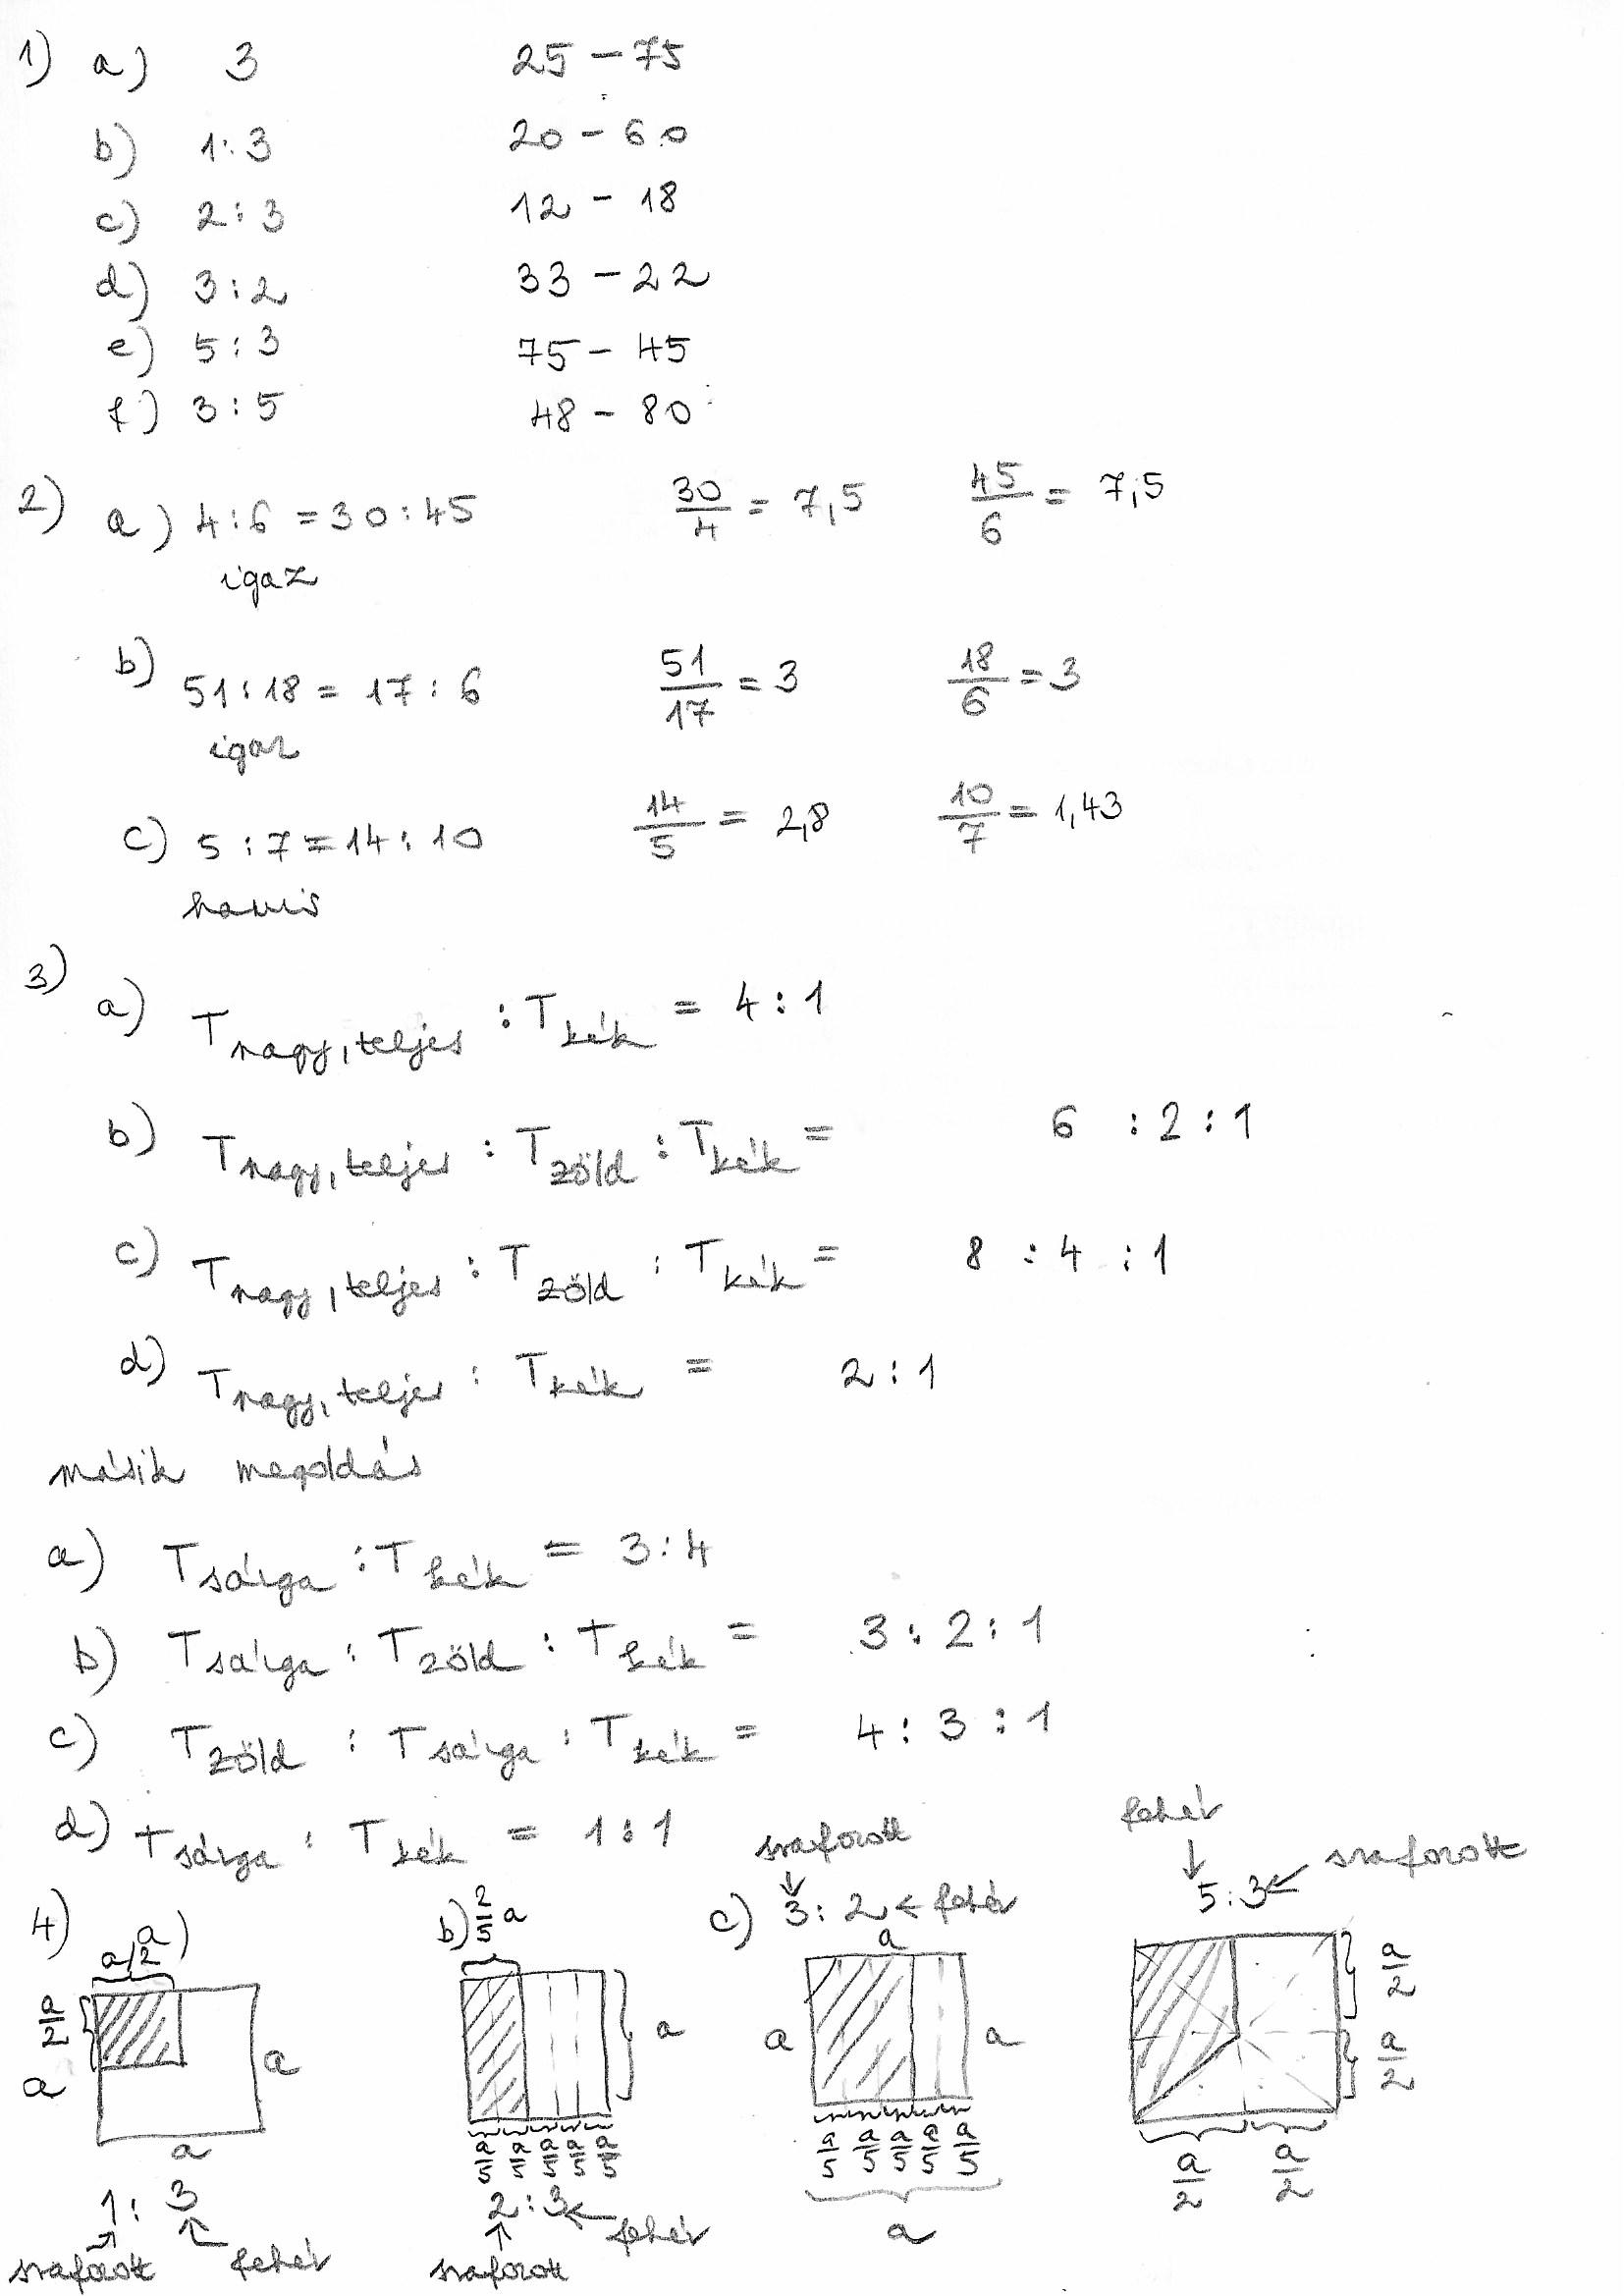 1) a) 3 25 – 75
b) 1:3 20 – 60
c) 2:3 12 – 18
d) 3:2 33 – 22
e) 5:3 75 – 45
f) 3:5 48 – 80
2) a) 4:6 = 30:45 30/4 = 7,5 45/6 = 7,5
igaz
b) 51:18 = 17:6 51/17 = 3 18/6 = 3
igaz
c) 5:7 = 14:10 14/5 = 2,8 10/7 = 1,43
hamis
3) a) T nagy, teljes : T kék = 4:1
b) T nagy, teljes : T zöld : T kék = 6 : 2 : 1
c) T nagy, teljes : T zöld : T kék = 8 : 4 : 1
d) T nagy, teljes : T kék = 2:1
másik megoldás
a) T sárga : T kék = 3:4
b) T sárga : T zöld : T kék = 3:2:1
c) T zöld : T sárga : T kék = 4:3:1
d) T sárga : T kék = 1:1
4) a)
a/2
a/2
a
a
a
1:3
srafozott fehér
b) 2/5 a
a
a/5 a/5 a/5 a/5 a/5
2:3 ← fehér
srafozott
srafozott
c) 3:2 ← fehér
a
a
a
a/5 a/5 a/5 a/5 a/5
a
fehér
5:3 ← srafozott
a/2
a/2
a/2 a/2